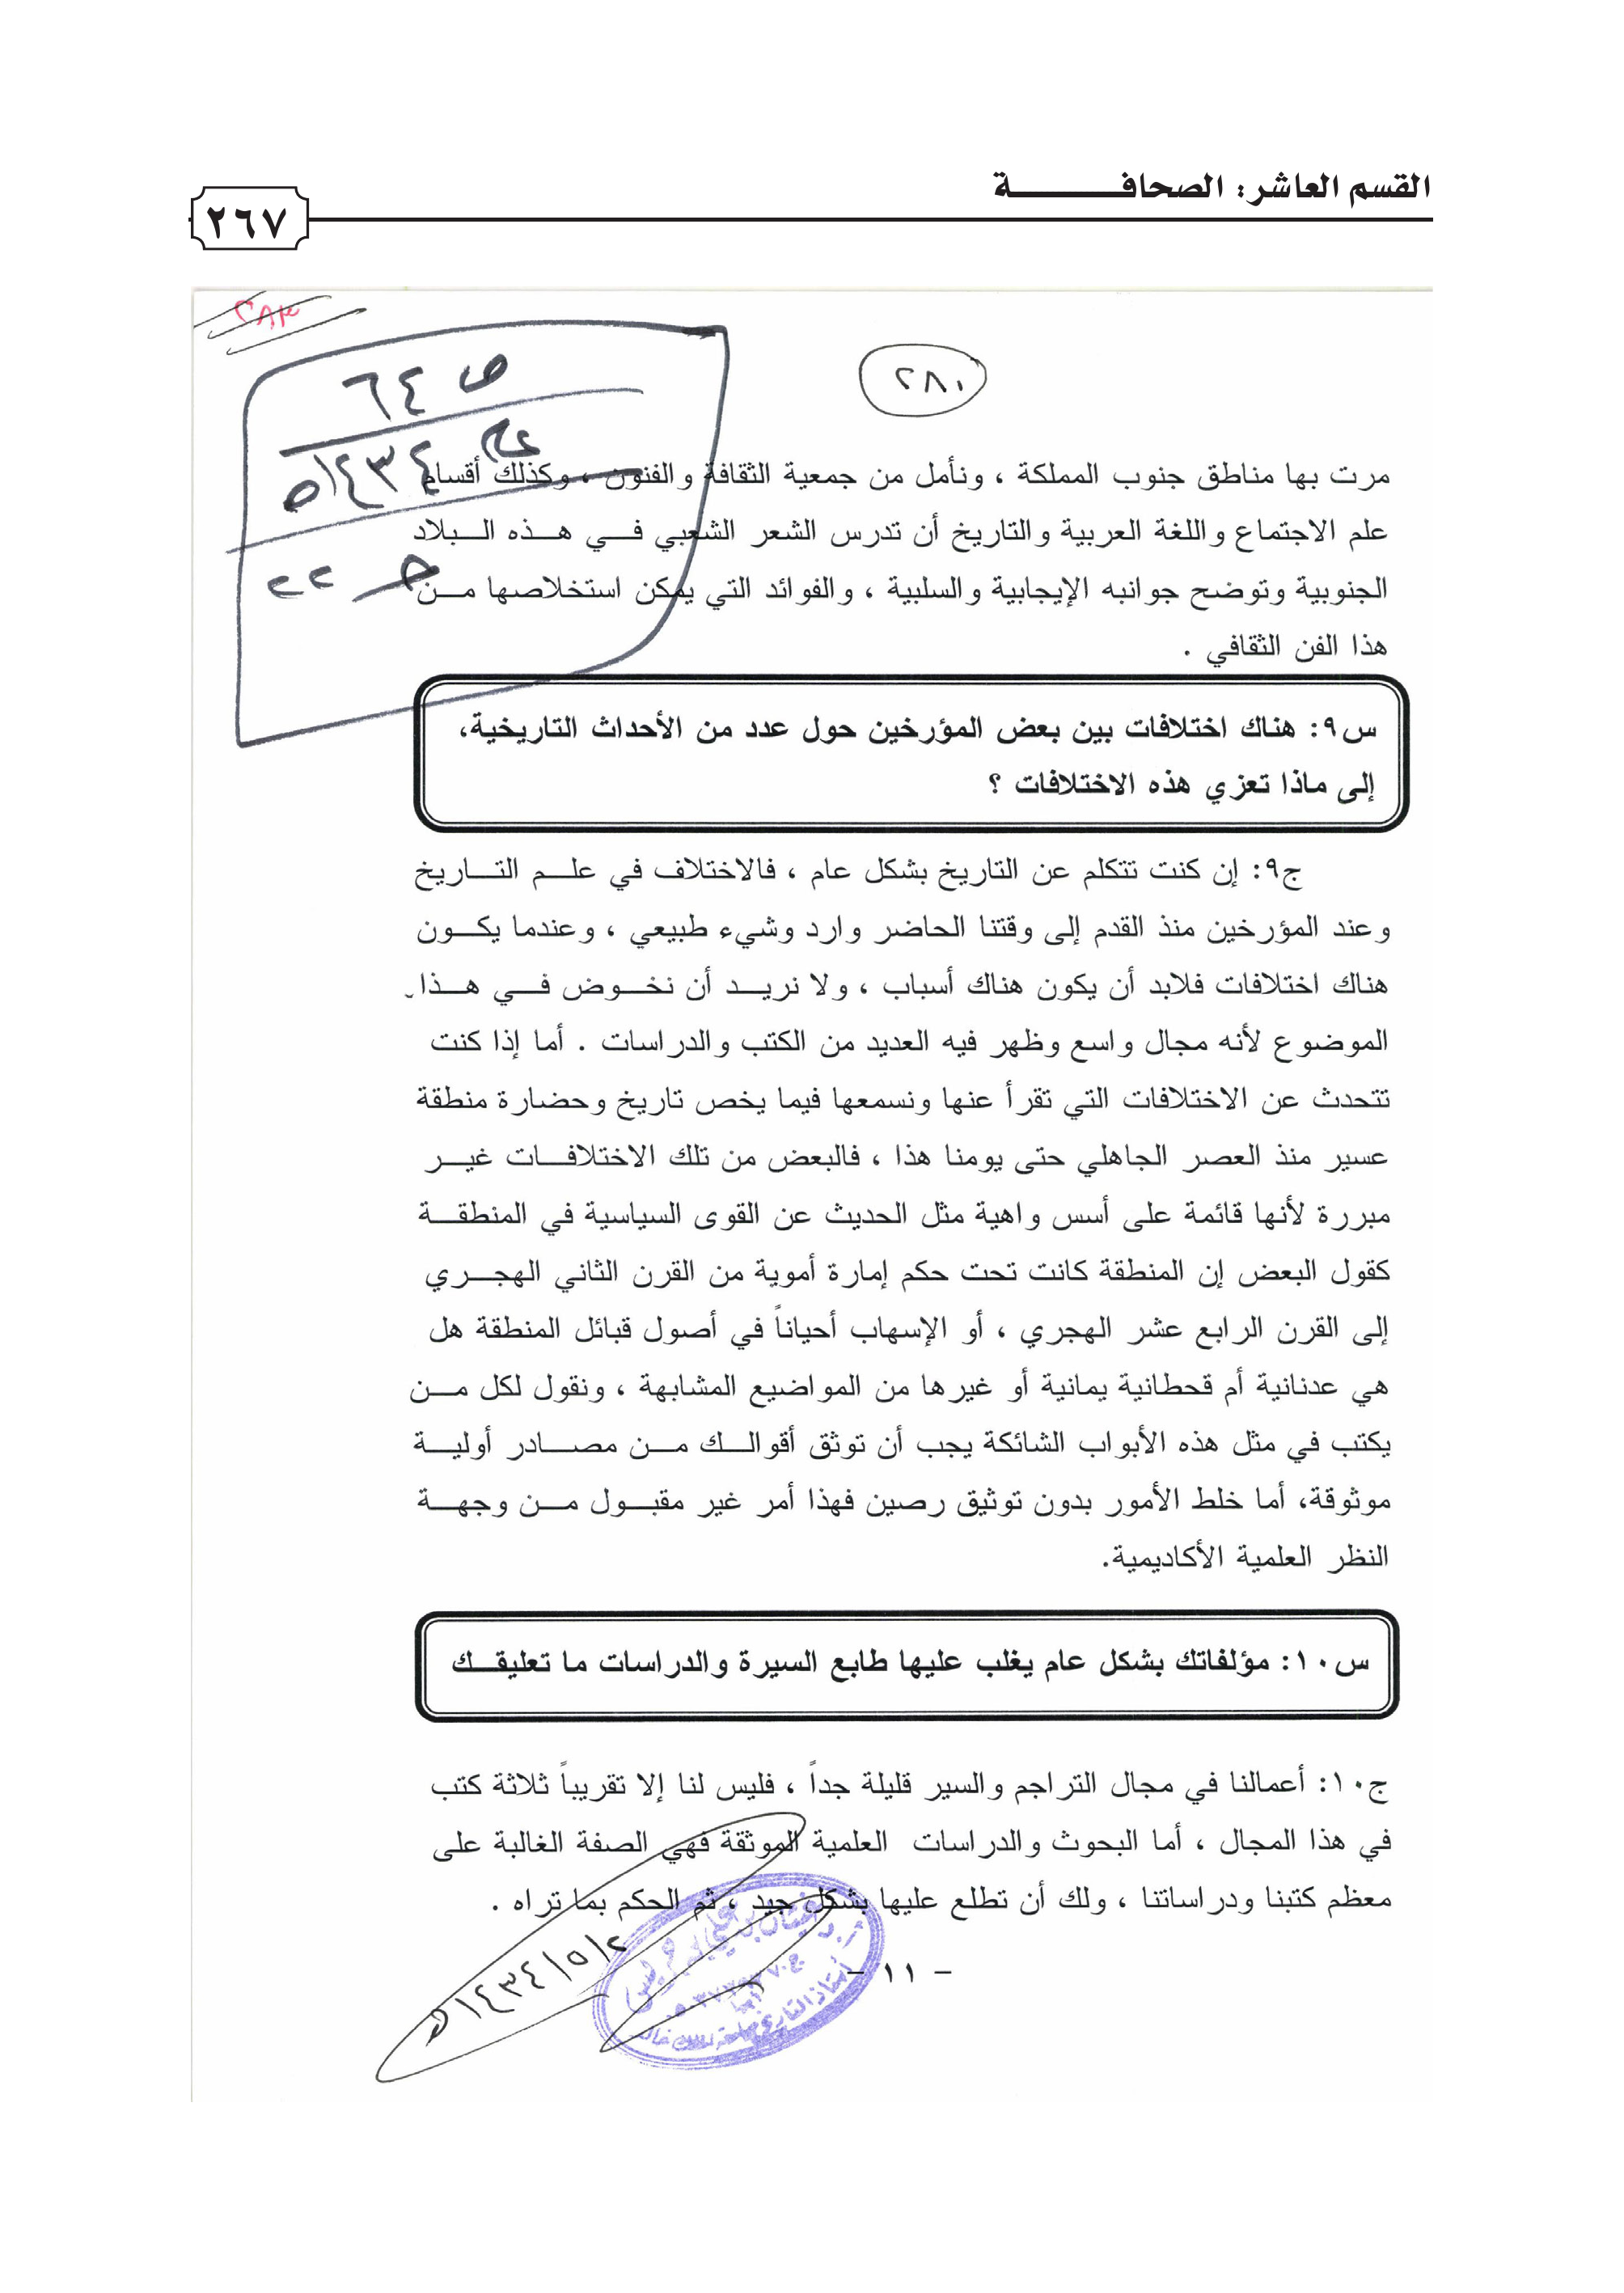 القسم العاشر: الصحافـــــــــــة
٢٦٧
٢٨٣
٢٨٠
ص ٦٤
١٤٣٤هـ
جـ ٢٢
مرت بها مناطق جنوب المملكة ، ونأمل من جمعية الثقافة والفنون ، وكذلك أقسام
علم الاجتماع واللغة العربية والتاريخ أن تدرس الشعر الشعبي فـــي هـــذه الـــبلاد
الجنوبية وتوضح جوانبه الإيجابية والسلبية ، والفوائد التي يمكن استخلاصها مـــن
هذا الفن الثقافي .
س٩: هناك اختلافات بين بعض المؤرخين حول عدد من الأحداث التاريخية،
إلى ماذا تعزي هذه الاختلافات ؟
ج٩: إن كنت تتكلم عن التاريخ بشكل عام ، فالاختلاف في علـــم التـــاريخ
وعند المؤرخين منذ القدم إلى وقتنا الحاضر وارد وشيء طبيعي ، وعندما يكـــون
هناك اختلافات فلابد أن يكون هناك أسباب ، ولا نريـــد أن نخـــوض فـــي هـــذا
الموضوع لأنه مجال واسع وظهر فيه العديد من الكتب والدراسات . أما إذا كنت
تتحدث عن الاختلافات التي تقرأ عنها ونسمعها فيما يخص تاريخ وحضارة منطقة
عسير منذ العصر الجاهلي حتى يومنا هذا ، فالبعض من تلك الاختلافـــات غيـــر
مبررة لأنها قائمة على أسس واهية مثل الحديث عن القوى السياسية في المنطقـــة
كقول البعض إن المنطقة كانت تحت حكم إمارة أموية من القرن الثاني الهجـــري
إلى القرن الرابع عشر الهجري ، أو الإسهاب أحياناً في أصول قبائل المنطقة هل
هي عدنانية أم قحطانية يمانية أو غيرها من المواضيع المشابهة ، ونقول لكل مـــن
يكتب في مثل هذه الأبواب الشائكة يجب أن توثق أقوالـــك مـــن مصـــادر أوليـــة
موثوقة، أما خلط الأمور بدون توثيق رصين فهذا أمر غير مقبـــول مـــن وجهـــة
النظر العلمية الأكاديمية.
س١٠: مؤلفاتك بشكل عام يغلب عليها طابع السيرة والدراسات ما تعليقـــك
ج١٠: أعمالنا في مجال التراجم والسير قليلة جداً ، فليس لنا إلا تقريباً ثلاثة كتب
في هذا المجال ، أما البحوث والدراسات العلمية الموثقة فهي الصفة الغالبة على
معظم كتبنا ودراساتنا ، ولك أن تطلع عليها بشكل جيد ، ثم الحكم بما تراه .
أ.د. غيثان بن علي بن جريس
أستاذ التاريخ بجامعة الملك خالد
٢/٥/١٤٣٤هـ
– ١١ –